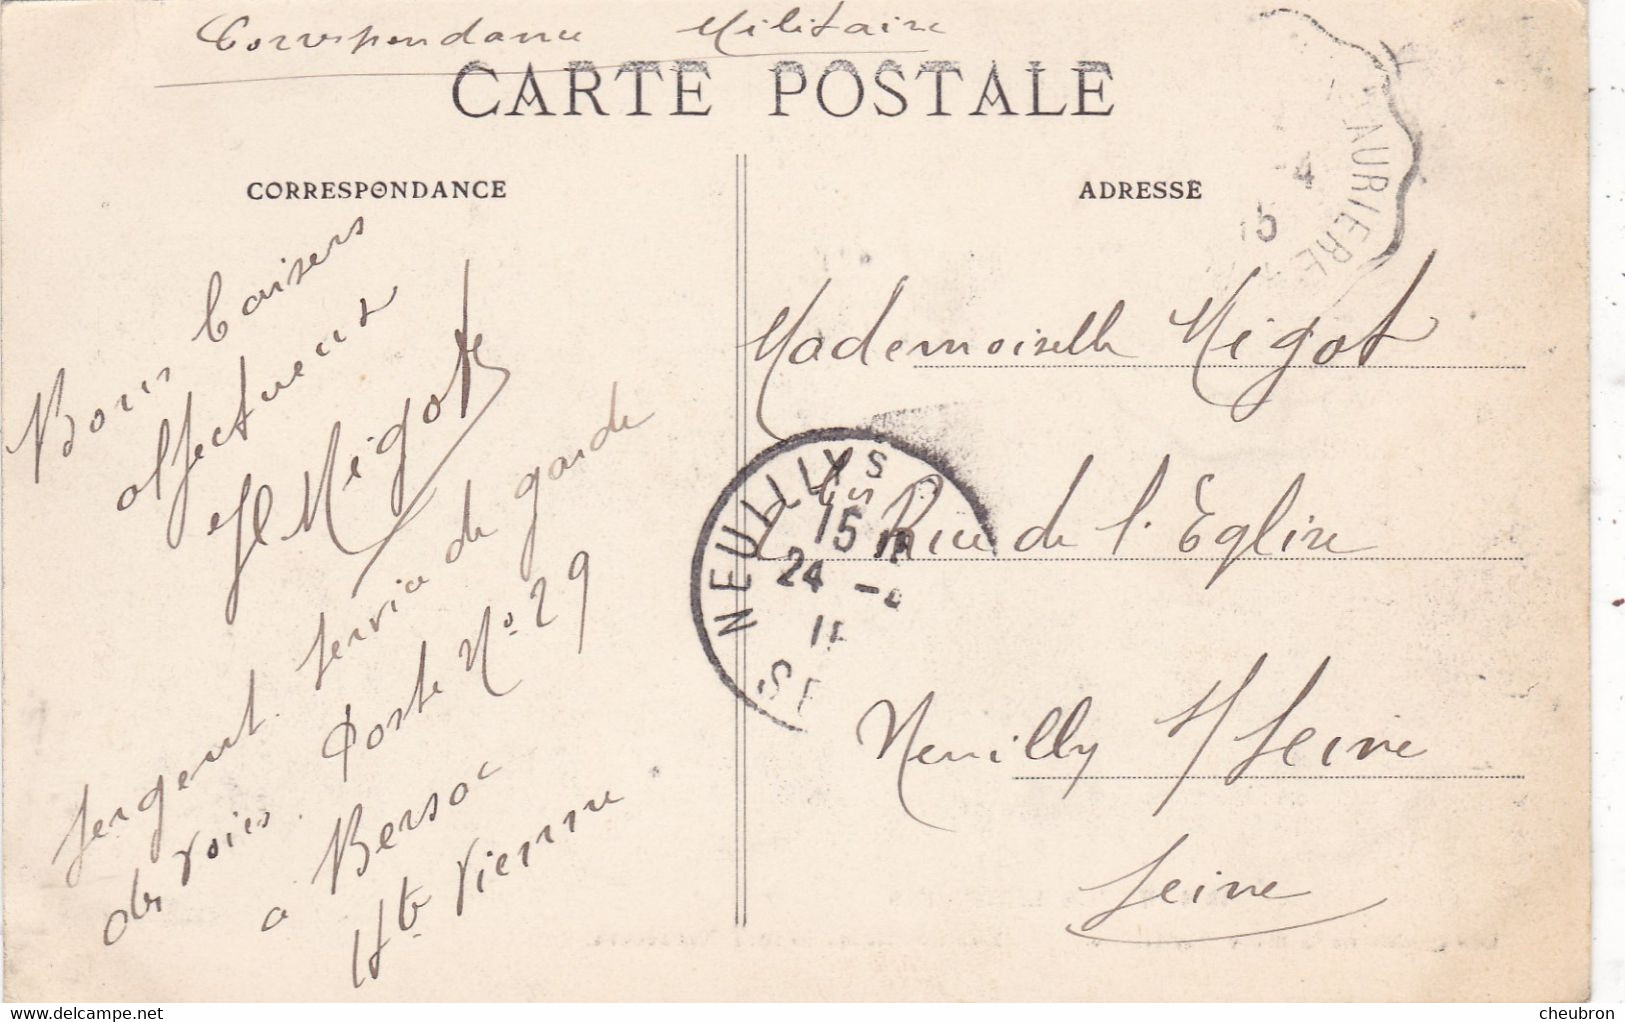 Correspondance Militaire
CARTE POSTALE
CORRESPONDANCE
ADRESSE
Bons baisers
affectueux
Migot
Sergent. Service de garde
des voies. Poste No. 29
a Bersac
Hte Vienne
Mademoiselle Migot
bis Rue de l'Eglise
Neuilly S/ Seine
Seine
NEUILLY S
15
24 -
SE
AURIERE
-4
15
delcampe.net
cheubron